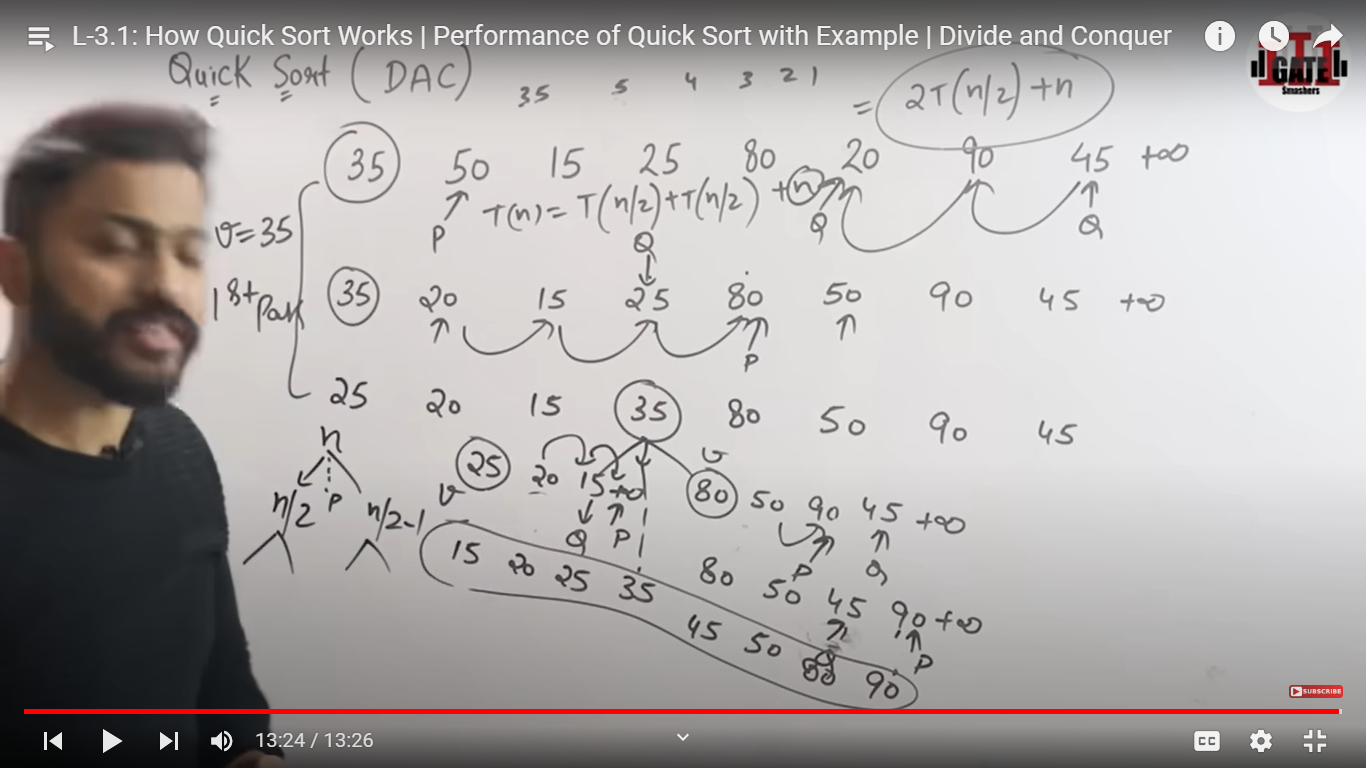 L-3.1: How Quick Sort Works | Performance of Quick Sort with Example | Divide and Conquer
GATE
Smashers
Quick Sort (DAC)
35 5 4 3 2 1
= 2T(n/2)+n
35 50 15 25 80 20 90 45 +∞
P T(n)= T(n/2)+T(n/2) +n Q Q
v=35
Q
1st Pass
35 20 15 25 80 50 90 45 +∞
P
25 20 15 35 80 50 90 45
n
n/2 P n/2-1
v 25 20 15 +∞
Q P
v
80 50 90 45 +∞
P Q
15 20 25 35
80 50 45 90 +∞
Q P
45 50 80 90
SUBSCRIBE
13:24 / 13:26
CC